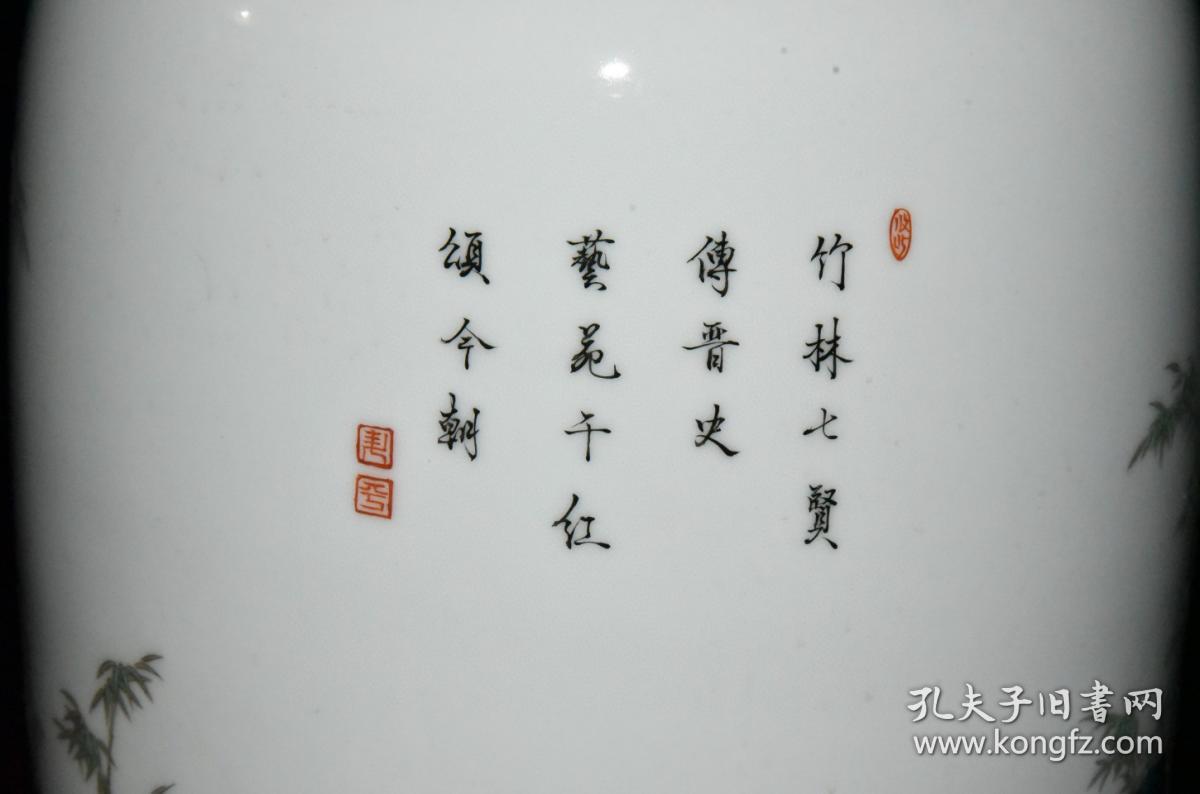 竹林七賢
傳晋史
藝苑千紅
頌今朝
孔夫子旧书网
www.kongfz.com